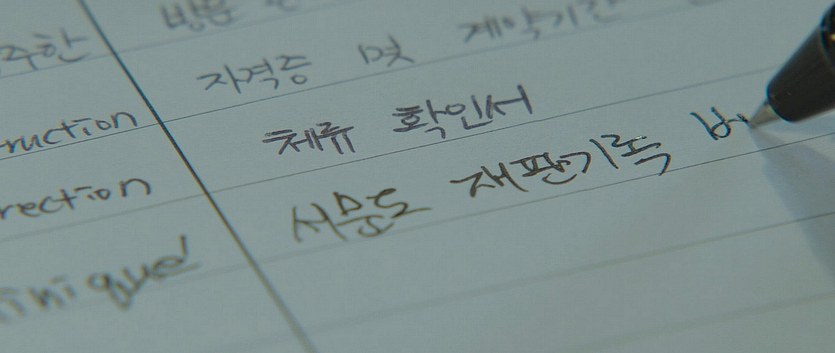 주한 방문
자격증 및 계약기간
ruction 체류 확인서
rection 서울도 재판기록 ㅂ
inique